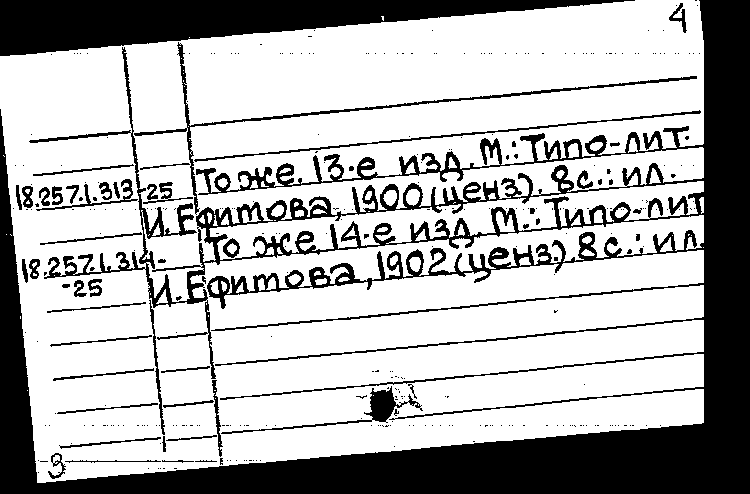 4
18.257.1.313-25 То же. 13-е изд. М.: Типо-лит.
И. Ефитова, 1900 (ценз). 8 с.: ил.
18.257.1.314- То же. 14-е изд. М.: Типо-лит
-25 И. Ефитова, 1902 (ценз.). 8 с.: ил.
3